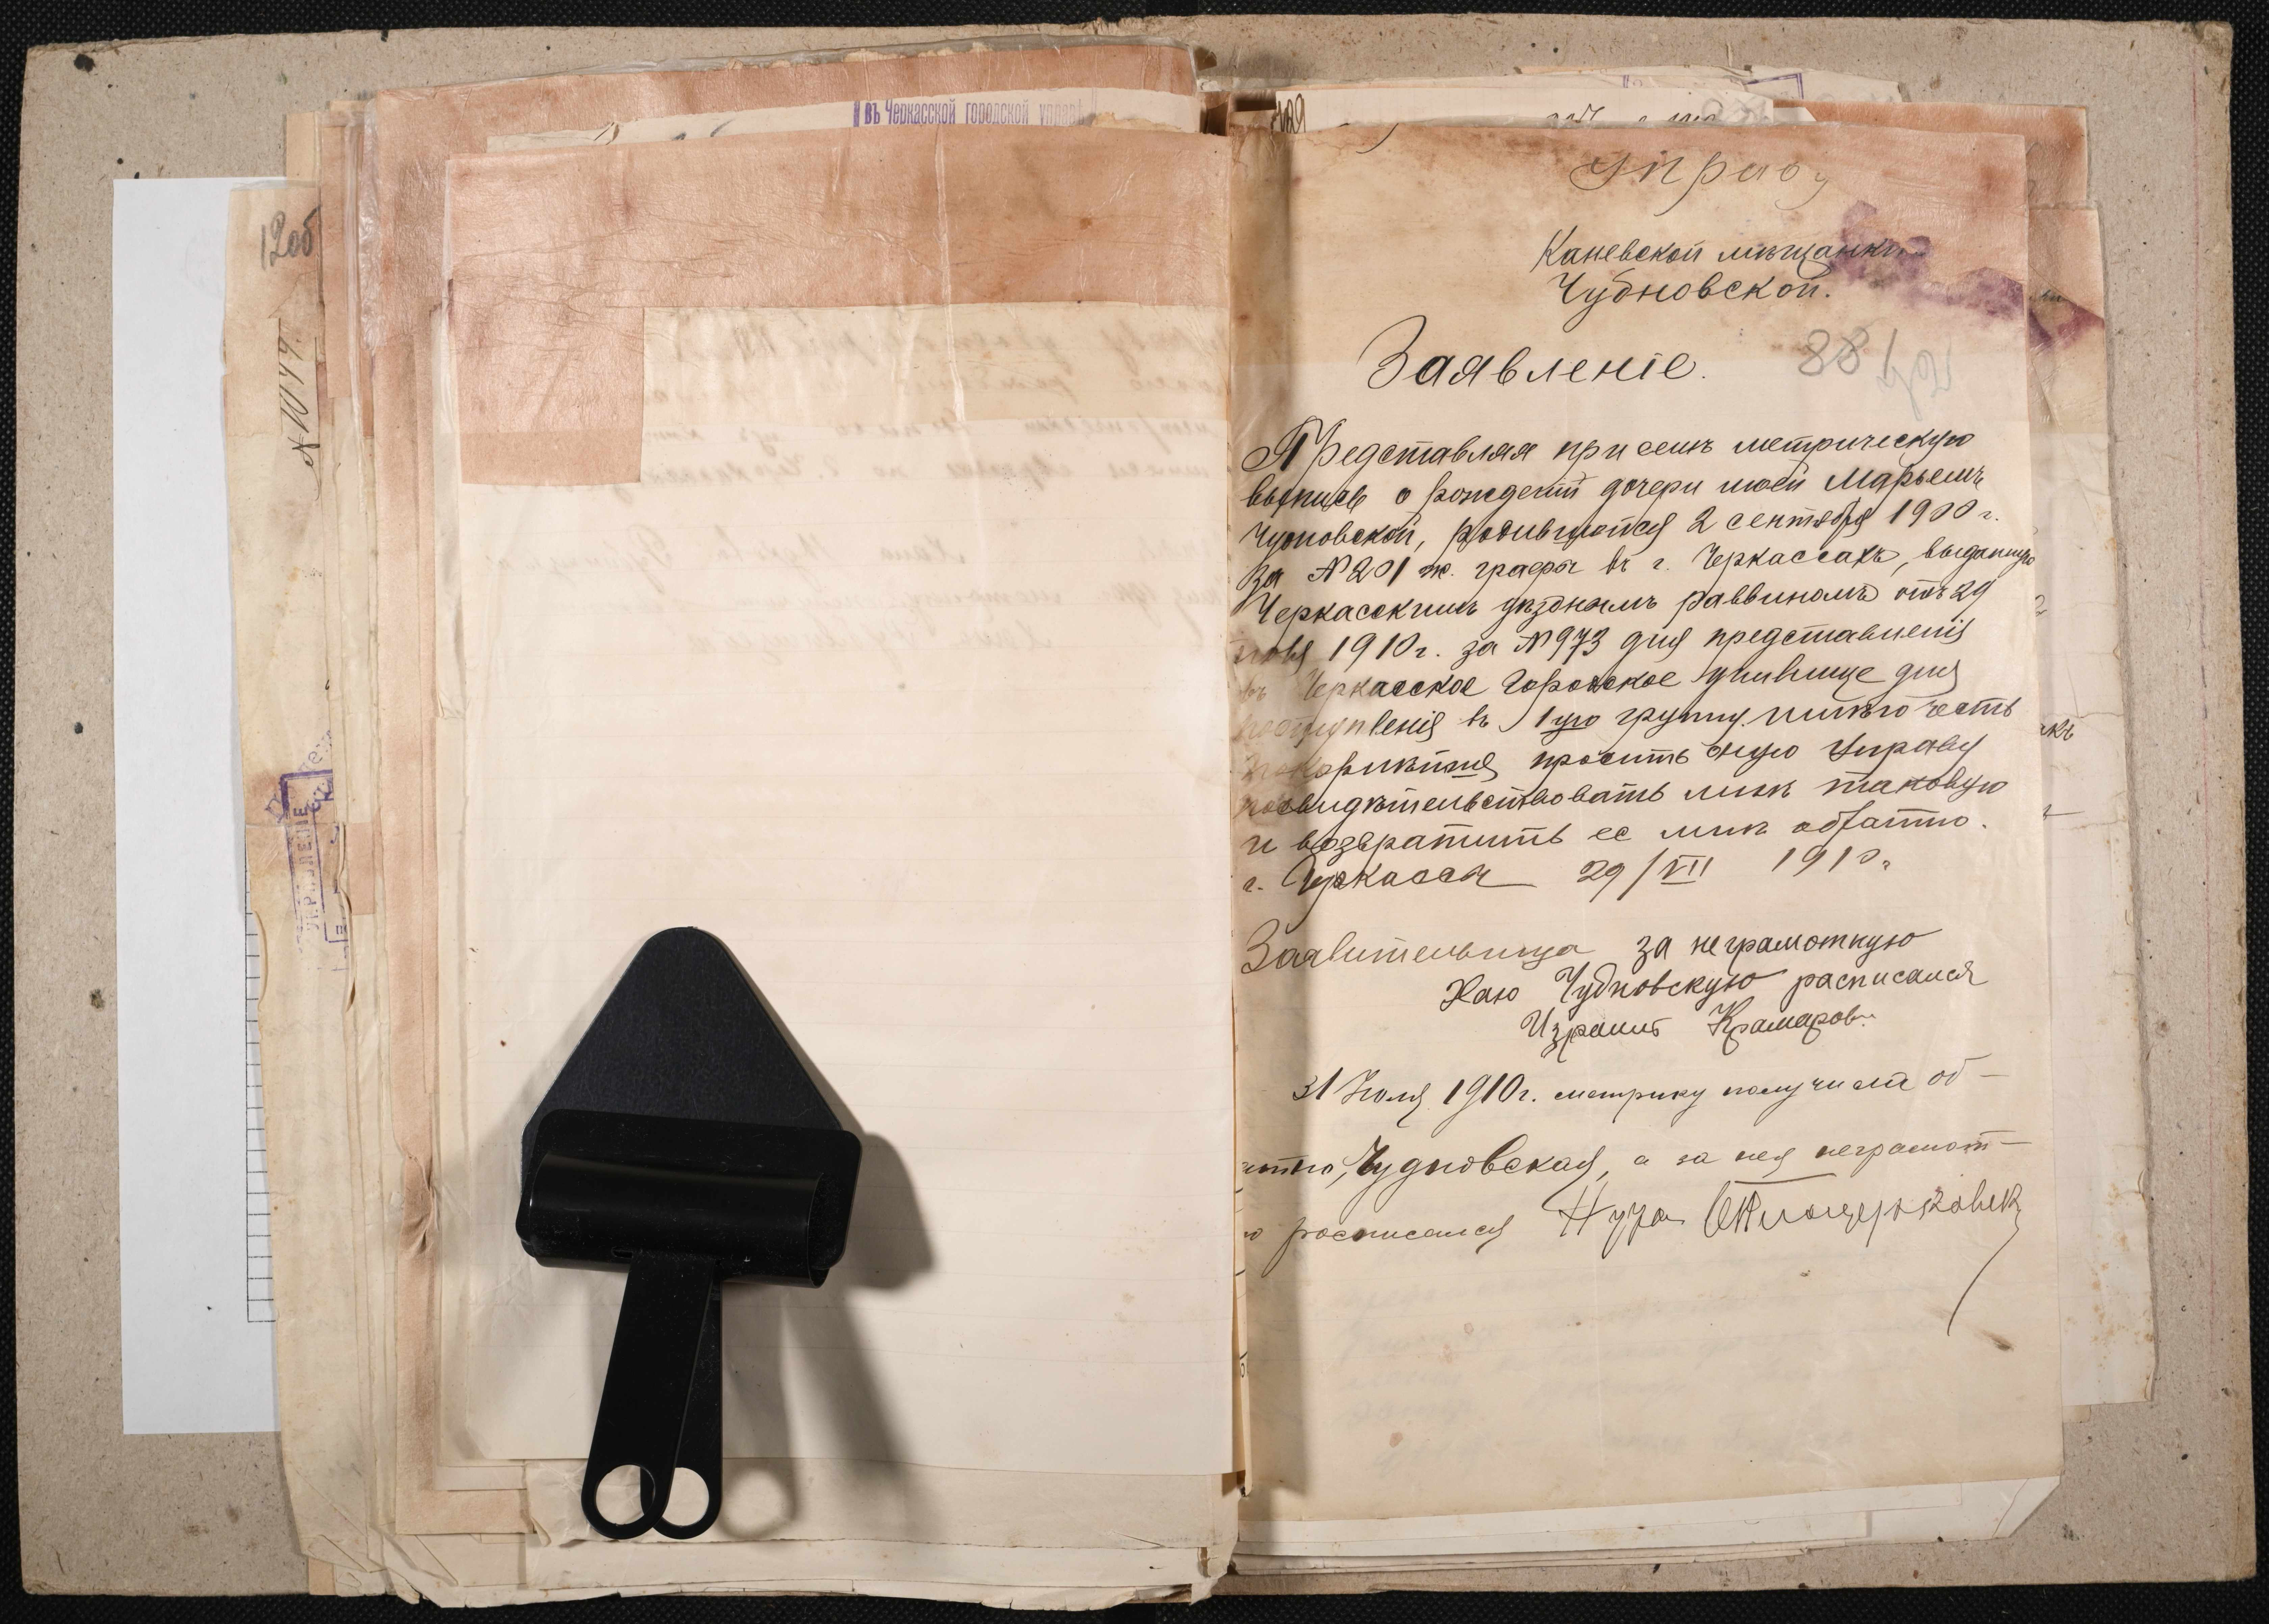 въ Черкасской городской управ
12об
№ 1044.
Управу
Каневской мѣщанки
Чудновской.
88
Заявленіе.
Представляя при семъ метрическую
выпись о рожденіи дочери моей Марьемъ
Чудновской, родившейся 2 сентября 1900 г.
за № 201 ж. графы въ г. Черкассахъ, выданную
Черкасскимъ уѣзднымъ раввиномъ отъ 29
1910 г. за № 973 для представленія
въ Черкасское Городское училище для
поступленія въ 1ую группу. имѣю честь
покорнѣйше просить оную Управу
засвидѣтельствовать мнѣ таковую
и возвратить ее мнѣ обратно.
г. Черкассы 29/VII 1910 г.
Заявительница за неграмотную
Хаю Чудновскую расписался
Израиль Крамаровъ
31 Июля 1910 г. метрику получила об-
ратно, Чудновская, а за нея неграмот-
ю росписался Нухим